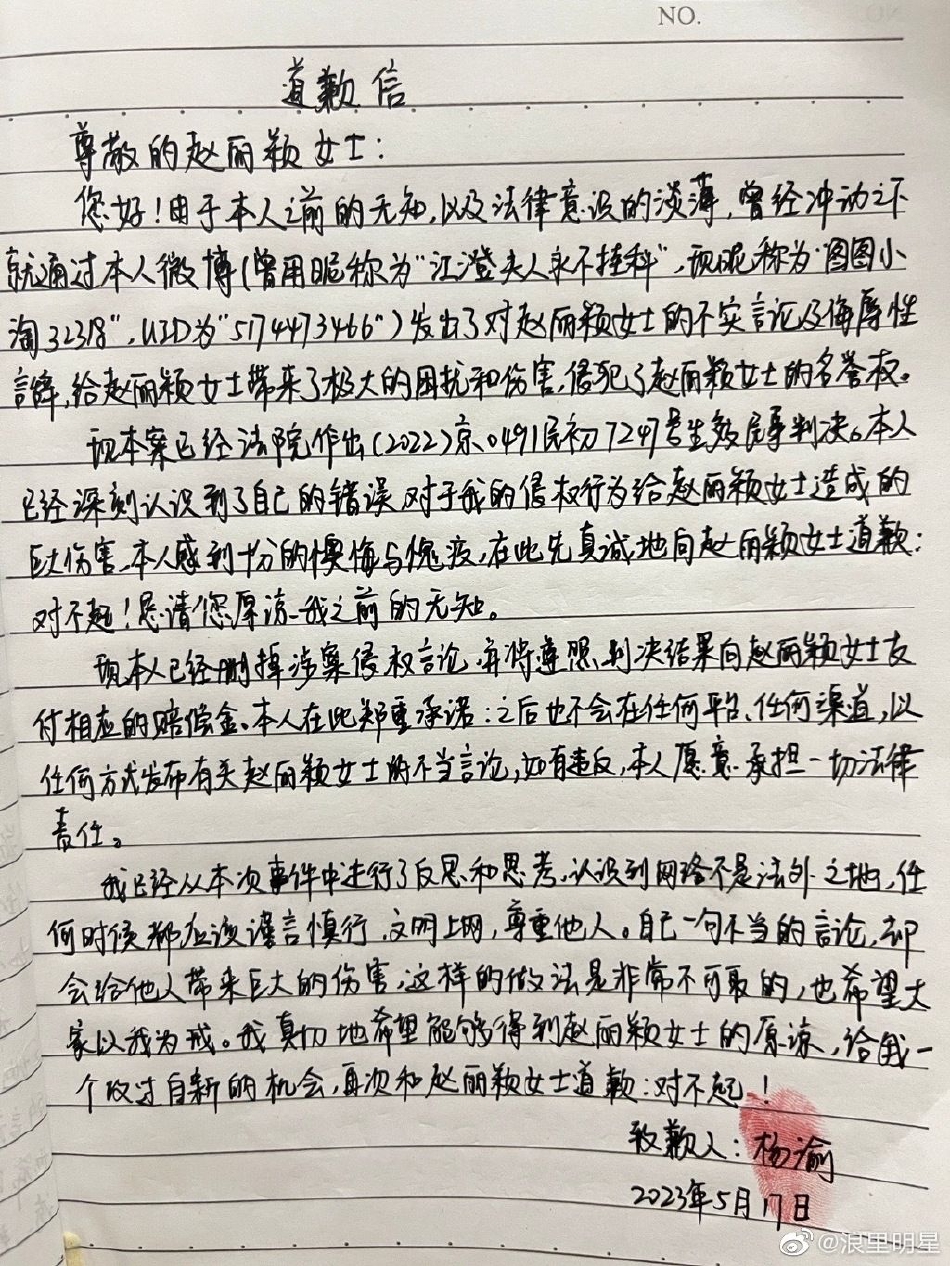 NO.
道歉信
尊敬的赵丽颖女士:
您好!由于本人之前的无知,以及法律意识的淡薄,曾经冲动之下
就通过本人微博(曾用昵称为“江澄夫人永不挂科”,现昵称为“图图小
淘32318”,UID为“5174473466”)发出了对赵丽颖女士的不实言论及侮辱性
言辞,给赵丽颖女士带来了极大的困扰和伤害,侵犯了赵丽颖女士的名誉权。
现本案已经法院作出(2022)京0491民初7247号生效民事判决。本人
已经深刻认识到了自己的错误,对于我的侵权行为给赵丽颖女士造成的
巨大伤害,本人感到十分的懊悔与愧疚,在此先真诚地向赵丽颖女士道歉:
对不起!恳请您原谅我之前的无知。
现本人已经删掉涉案侵权言论,并将遵照判决结果向赵丽颖女士支
付相应的赔偿金。本人在此郑重承诺:之后也不会在任何平台、任何渠道,以
任何方式发布有关赵丽颖女士的不当言论,如有违反,本人愿意承担一切法律
责任。
我已经从本次事件中进行了反思和思考,认识到网络不是法外之地,任
何时候都应该谨言慎行,文明上网,尊重他人。自己一句不当的言论,却
会给他人带来巨大的伤害,这样的做法是非常不可取的,也希望大
家以我为戒。我真切地希望能够得到赵丽颖女士的原谅,给我一
个改过自新的机会,再次和赵丽颖女士道歉:对不起!
致歉人:杨渝
2023年5月17日
@浪里明星